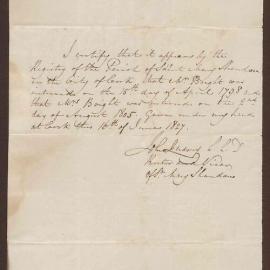 I certify that it appears by the
Registry of the Parish of Saint Mary Shandon
in the City of Cork that Mr Bright was
interred on the 15th day of April 1798 and
that Mrs Bright was interred on the 2nd
day of August 1805. Given under my hand
at Cork this 16th of June 1827.
LLD
Rector and Vicar
of St. Mary Shandon